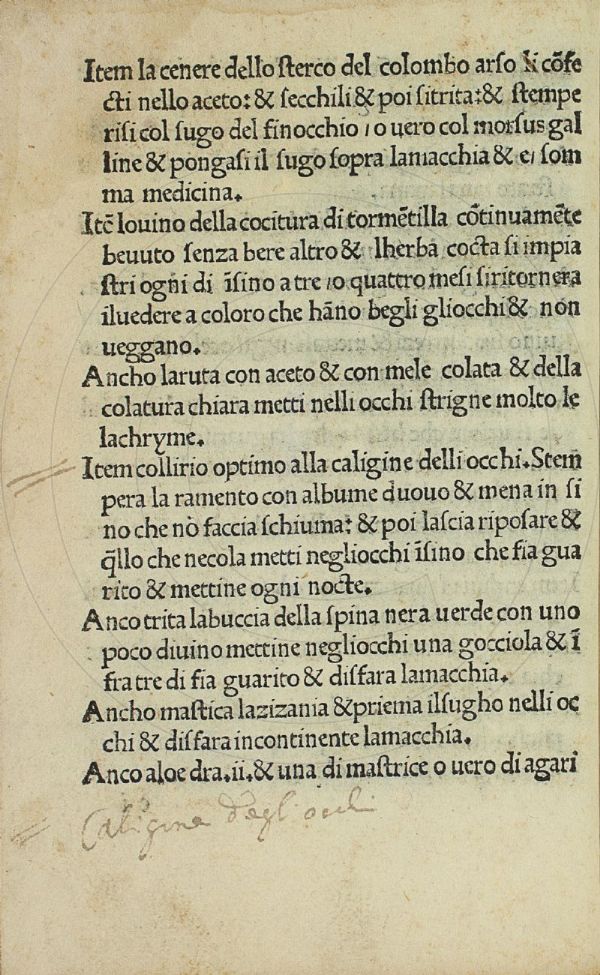 Item la cenere dello ſterco del colombo arſo li cõfe
cti nello aceto: & ſecchili & poi ſitrita: & ſtempe
riſi col ſugo del finocchio / o uero col morſus gal
line & pongaſi il ſugo ſopra lamacchia & e / ſom
ma medicina.
Itẽ louino della cocitura di tormẽtilla cõtinuamẽte
beuuto ſenza bere altro & lherba cocta ſi impia
ſtri ogni di ĩſino a tre / o quattro meſi ſiritornera
iluedere a coloro che hãno begli gliocchi & non
ueggano.
Ancho laruta con aceto & con mele colata & della
colatura chiara metti nelli occhi ſtrigne molto le
lachryme.
Item collirio optimo alla caligine delli occhi. Stem
pera la ramento con albume duouo & mena in ſi
no che nõ faccia ſchiuma: & poi laſcia ripoſare &
q̃llo che necola metti negliocchi ĩſino che ſia gua
rito & mettine ogni nocte.
Anco trita labuccia della ſpina nera uerde con uno
poco diuino mettine negliocchi una gocciola & ĩ
fra tre di ſia guarito & diſfara lamacchia.
Ancho maſtica lazizania & priema ilſugho nelli oc
chi & diſfara incontinente lamacchia.
Anco aloe dra. ii. & una di maſtrice o uero di agari
Caligine degl occhi